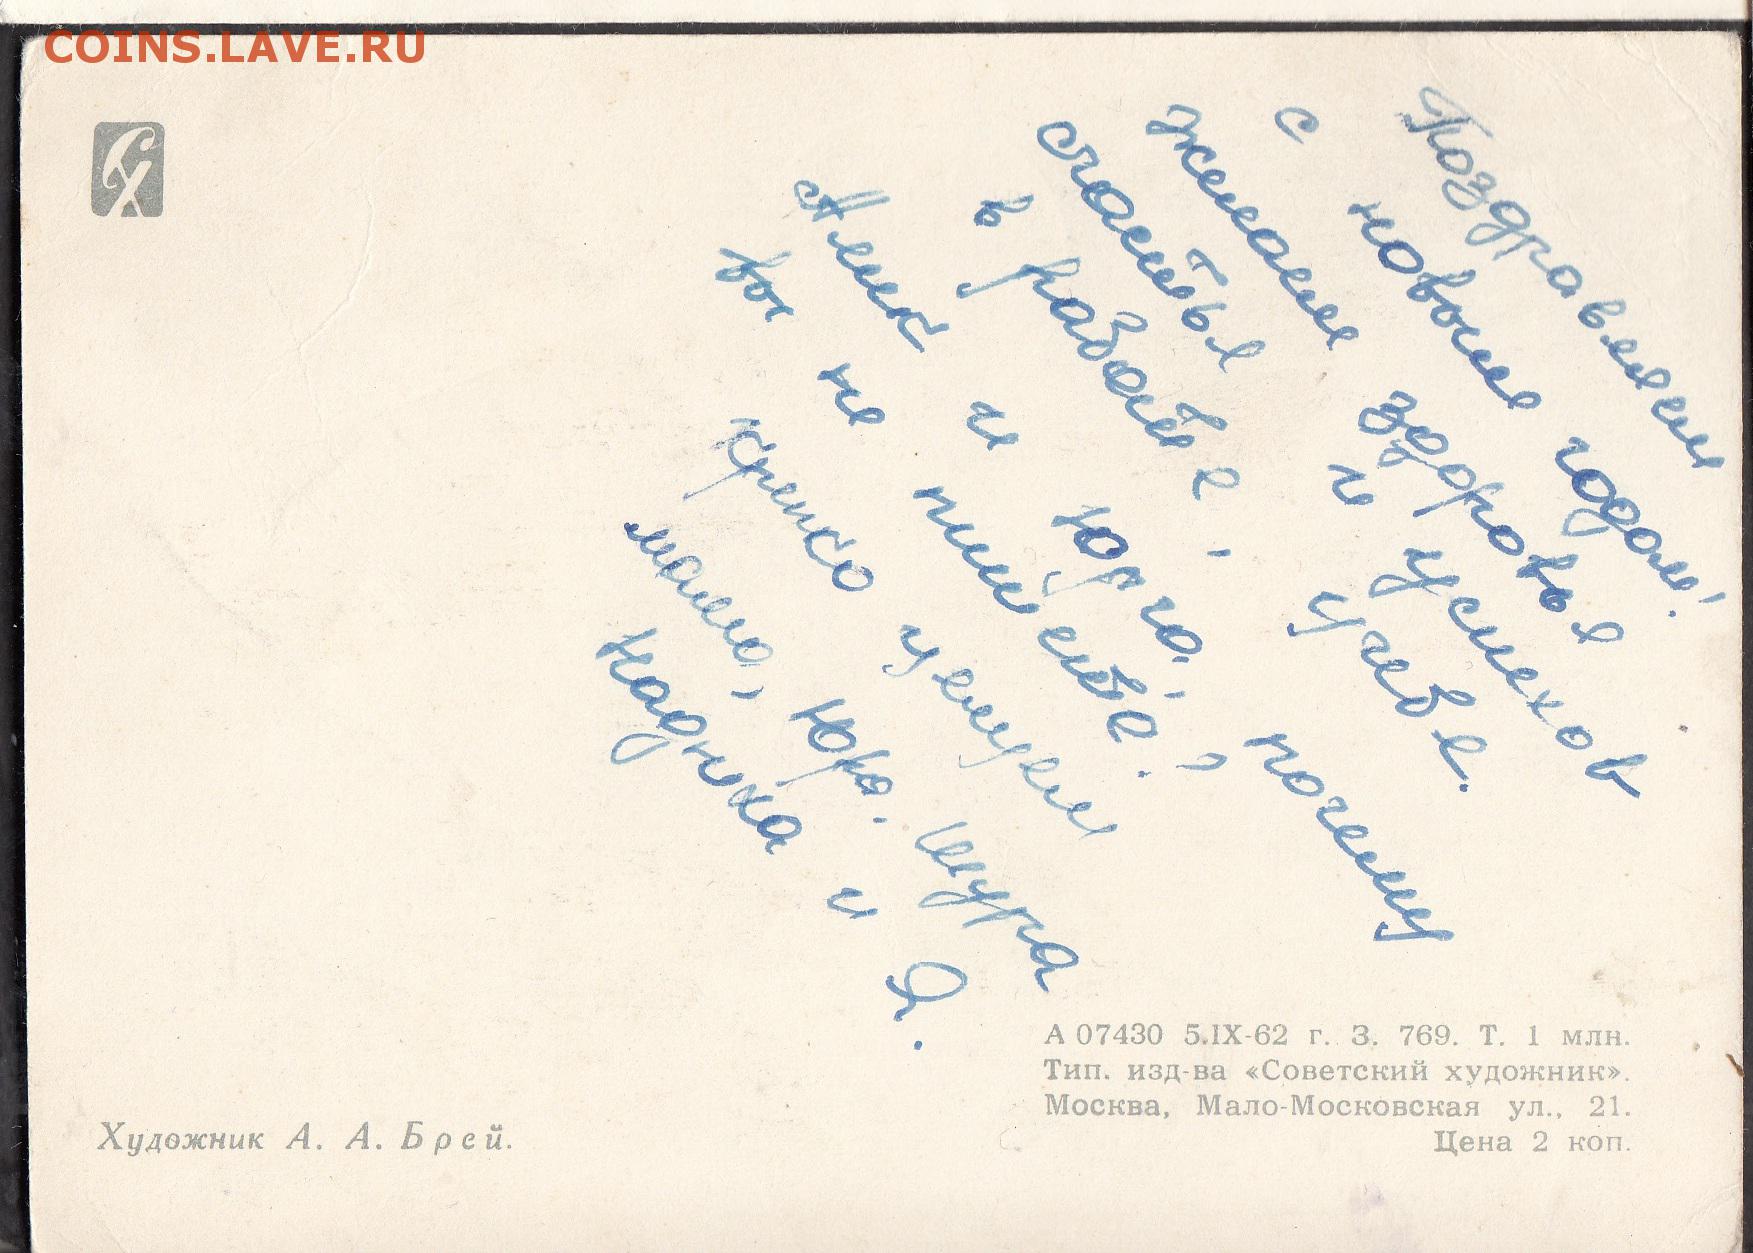 COINS.LAVE.RU
СХ
Поздравляем
с новым годом!
желаем здоровья
счастья и успехов
в работе, учебе.
Алик и Юра, почему
вы не пишете.
крепко целуем
мама, Юра. Шура
Надюха и Я.
А 07430 5.IX-62 г. З. 769. Т. 1 млн.
Тип. изд-ва «Советский художник».
Москва, Мало-Московская ул., 21.
Цена 2 коп.
Художник А. А. Брей.